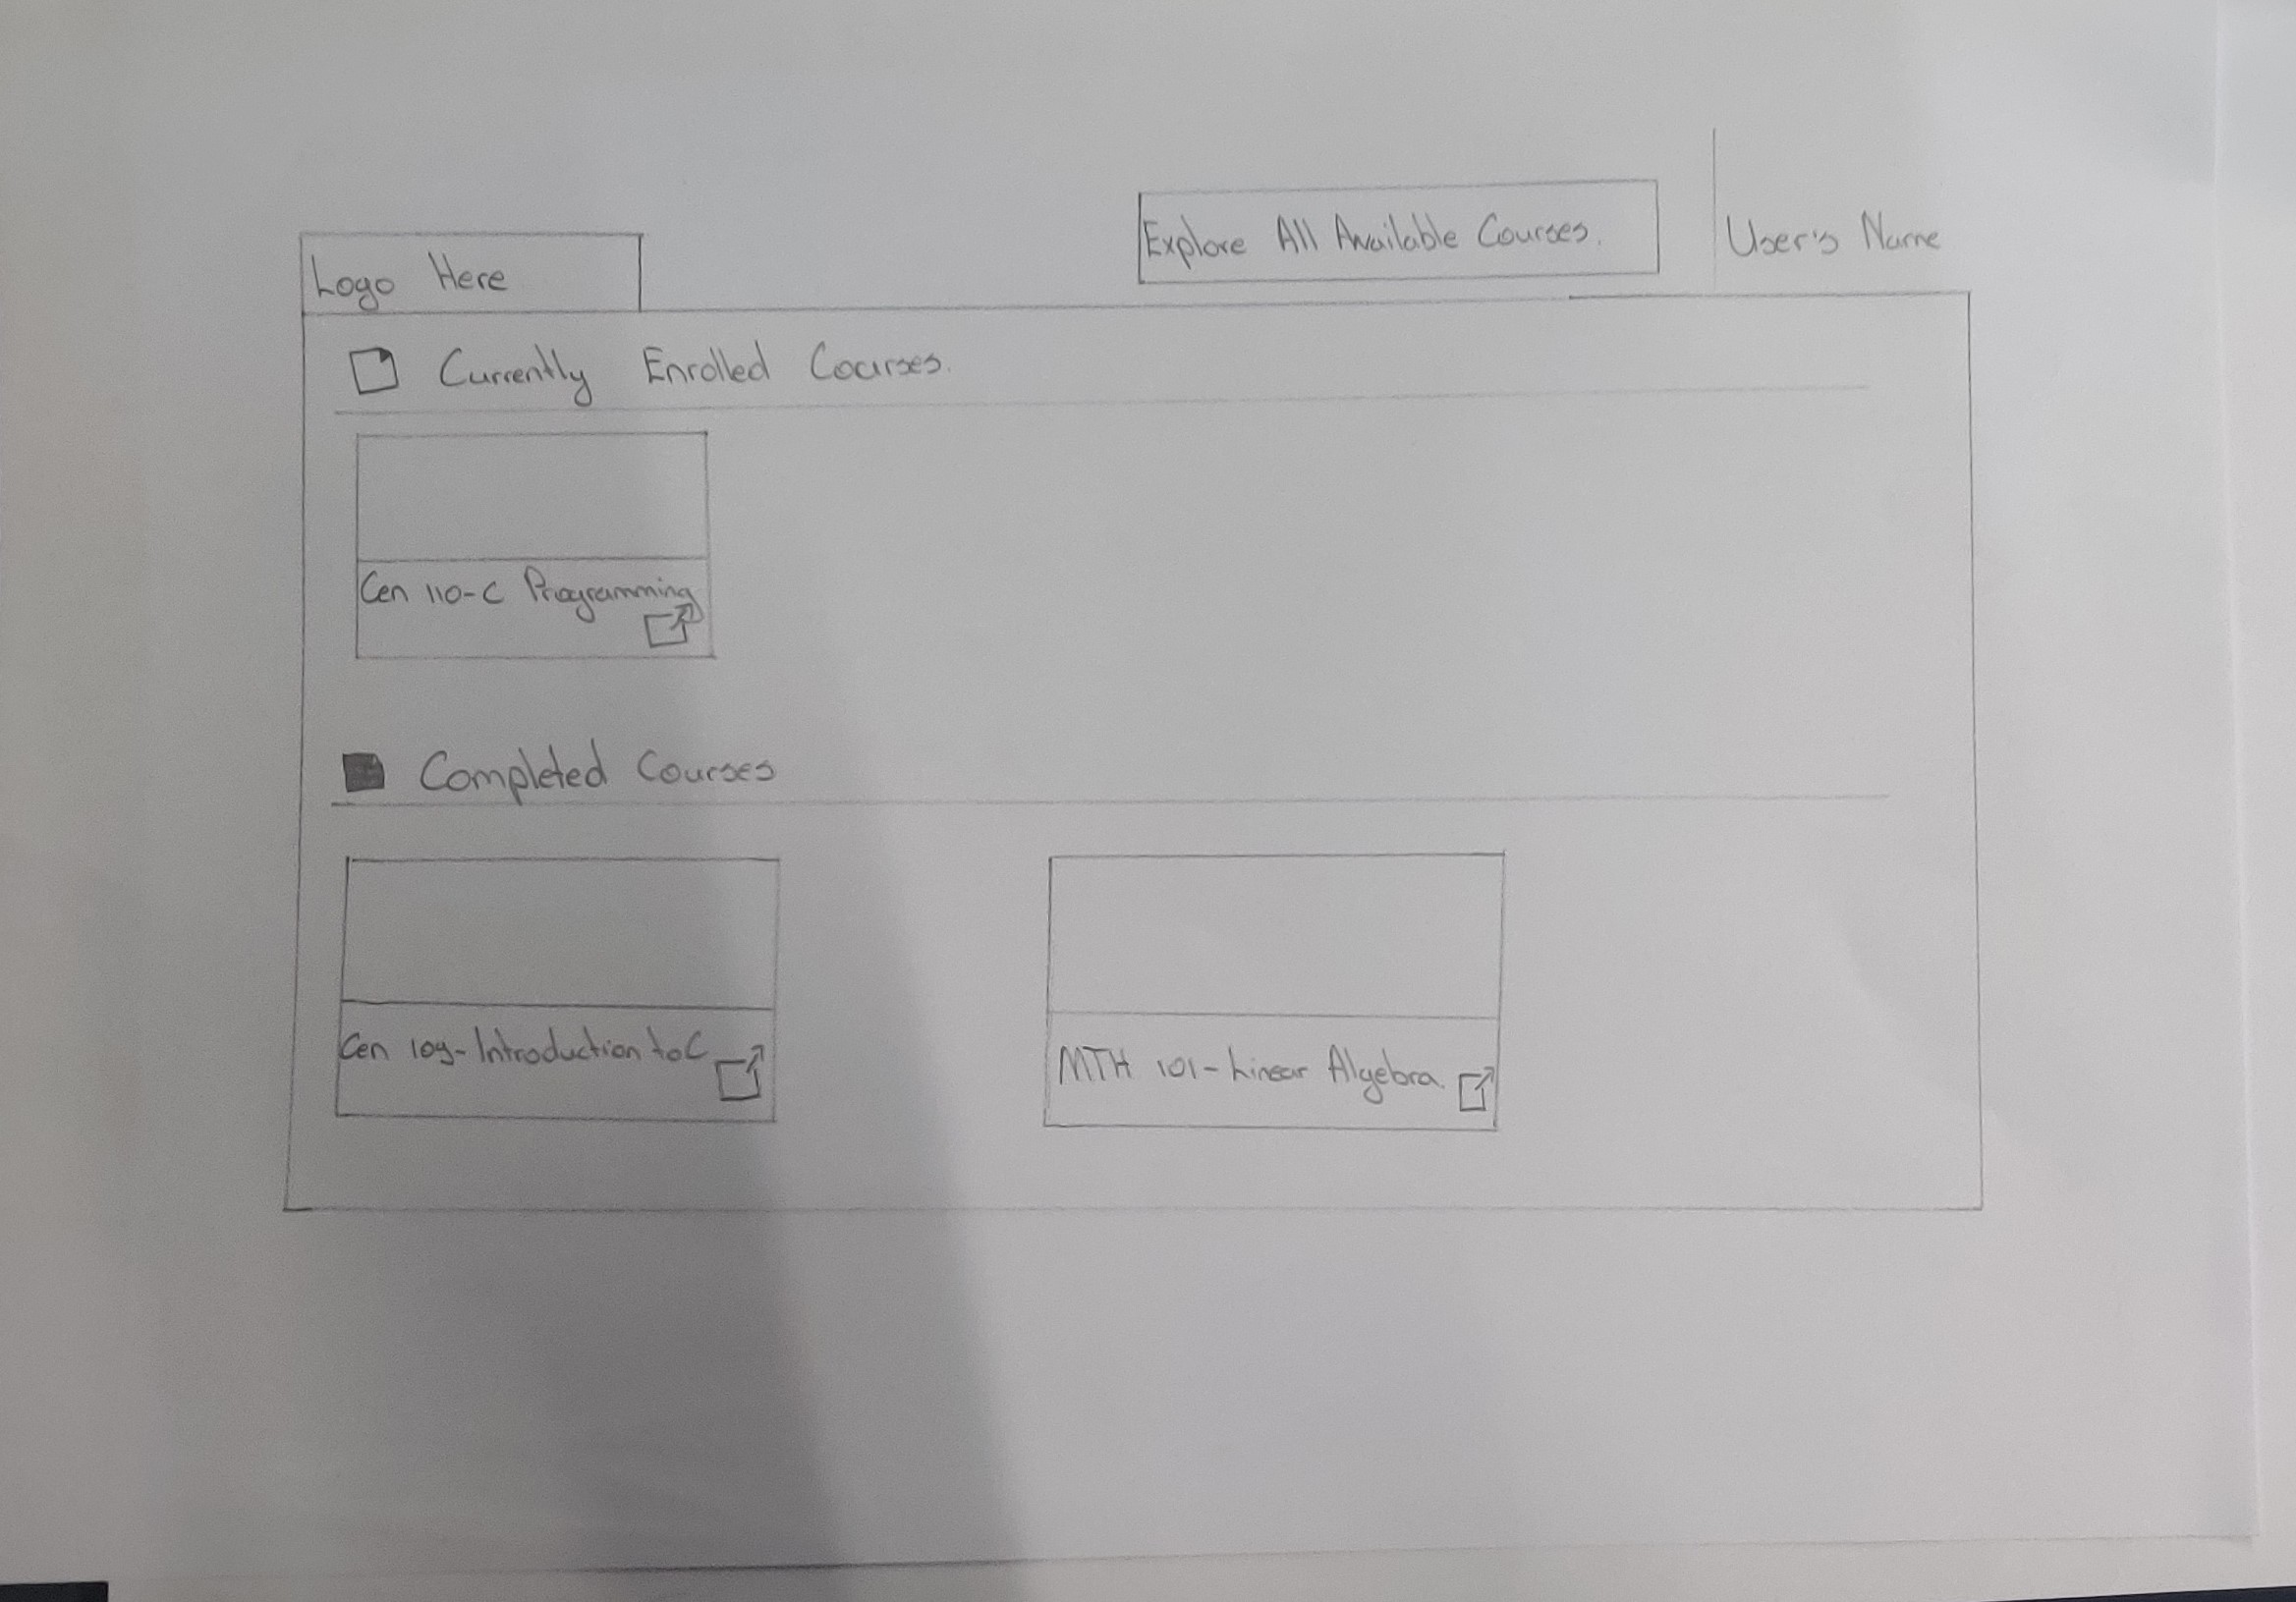 Explore All Available Courses.
User's Name
Logo Here
Currently Enrolled Courses.
Cen 110-C Programming
Completed Courses
Cen 109-Introduction to C
MTH 101-Linear Algebra.